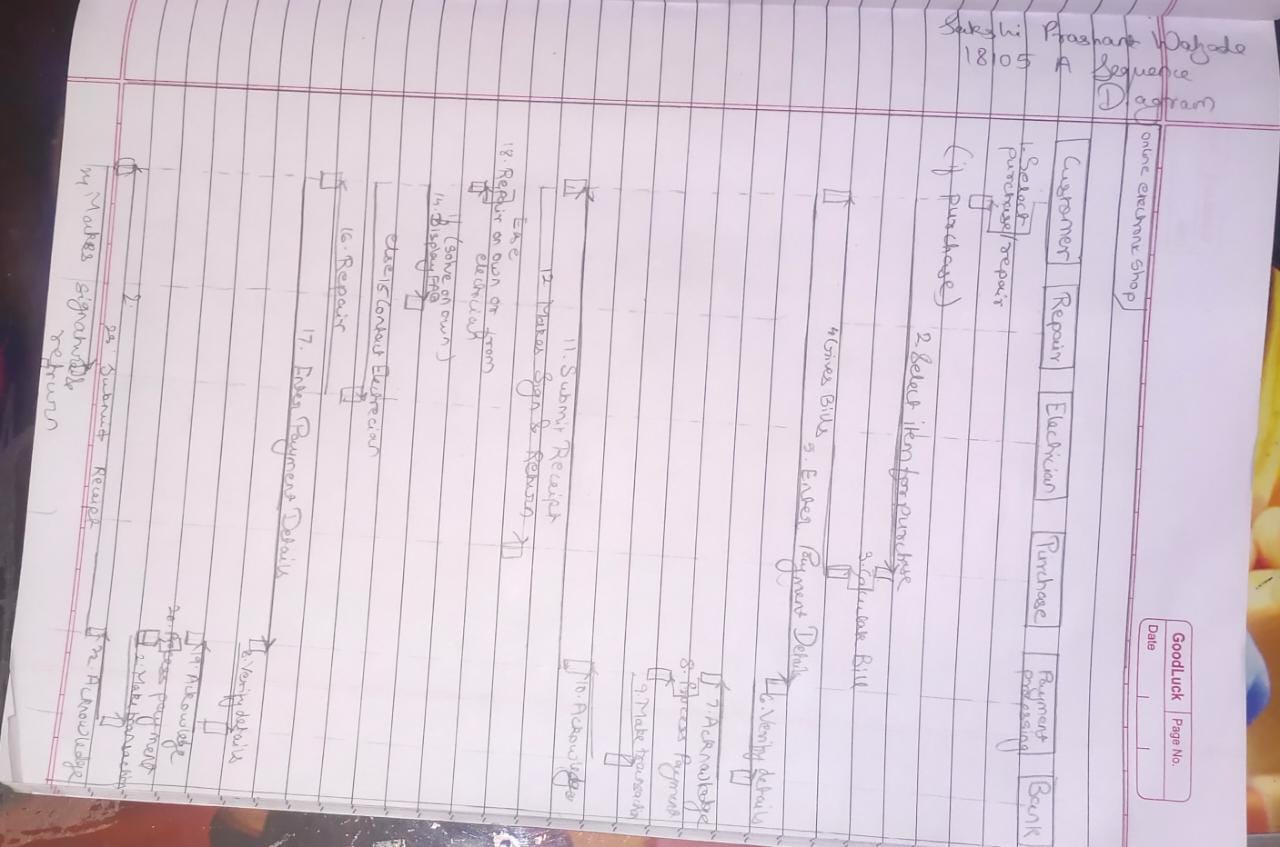 GoodLuck
Page No.
Date
Prashant
18105 A Sequence
Diagram
online electronic shop
Customer
Repair
Electrician
Purchase
Payment processing
Bank
1. Select
purchase/repair
(if purchase)
2. Select item for purchase
3. Calculate Bill
4. Gives Bills
5. Enter Payment Details
6. Verify details
7. Acknowledge
8. Process Payment
9. Make transaction
10. Acknowledge
11. Submit Receipt
12 Makes Sign & Return
Else
18. Repair on own or from
electrician
if (solve on own)
14. Display FAQ
else 15 Contact Electrician
16. Repair
17. Enter Payment Details
Verify details
19 Acknowledge
20. Process payment
Make transaction
22. Acknowledge
23. Submit Receipt
24 Makes signature &
return